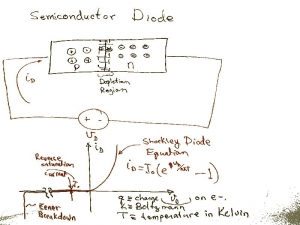 Semiconductor Diode
P n
Depletion
Region
i_D
+ -
V_D
i_D
Shockley Diode
Equation
i_D = I_o (e^(qV_D/kT) - 1)
Reverse
saturation
current
Zener
Breakdown
V_D
q = charge on e-.
k = Boltzmann
T = temperature in Kelvin